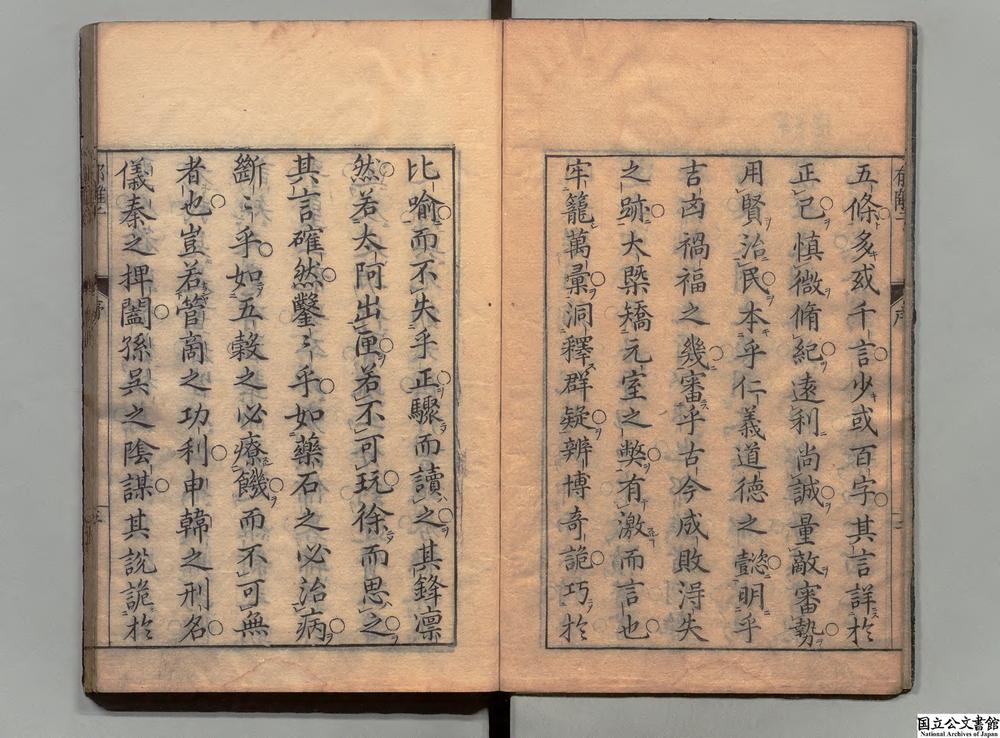 五條多或千言少或百字其言詳於
正己慎微脩紀遠利尚誠量敵審勢
用賢治民本乎仁義道德之懿明乎
吉凶禍福之幾審乎古今成敗淂失
之跡大槩矯元室之弊有激而言也
牢籠萬彚洞釋群疑辨博奇詭巧於
比喻而不失乎正驟而讀之其鋒凛
然若太阿出匣若不可玩徐而思之
其言確然鑿〻乎如藥石之必治病
斷〻乎如五穀之必療饑而不可無
者也豈若管商之功利申韓之刑名
儀秦之捭闔孫吳之陰謀其說詭於
序
国立公文書館
National Archives of Japan